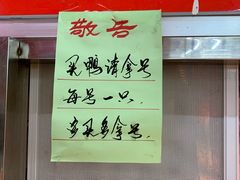 敬告
买鸭请拿号
每号一只.
多买多拿号.